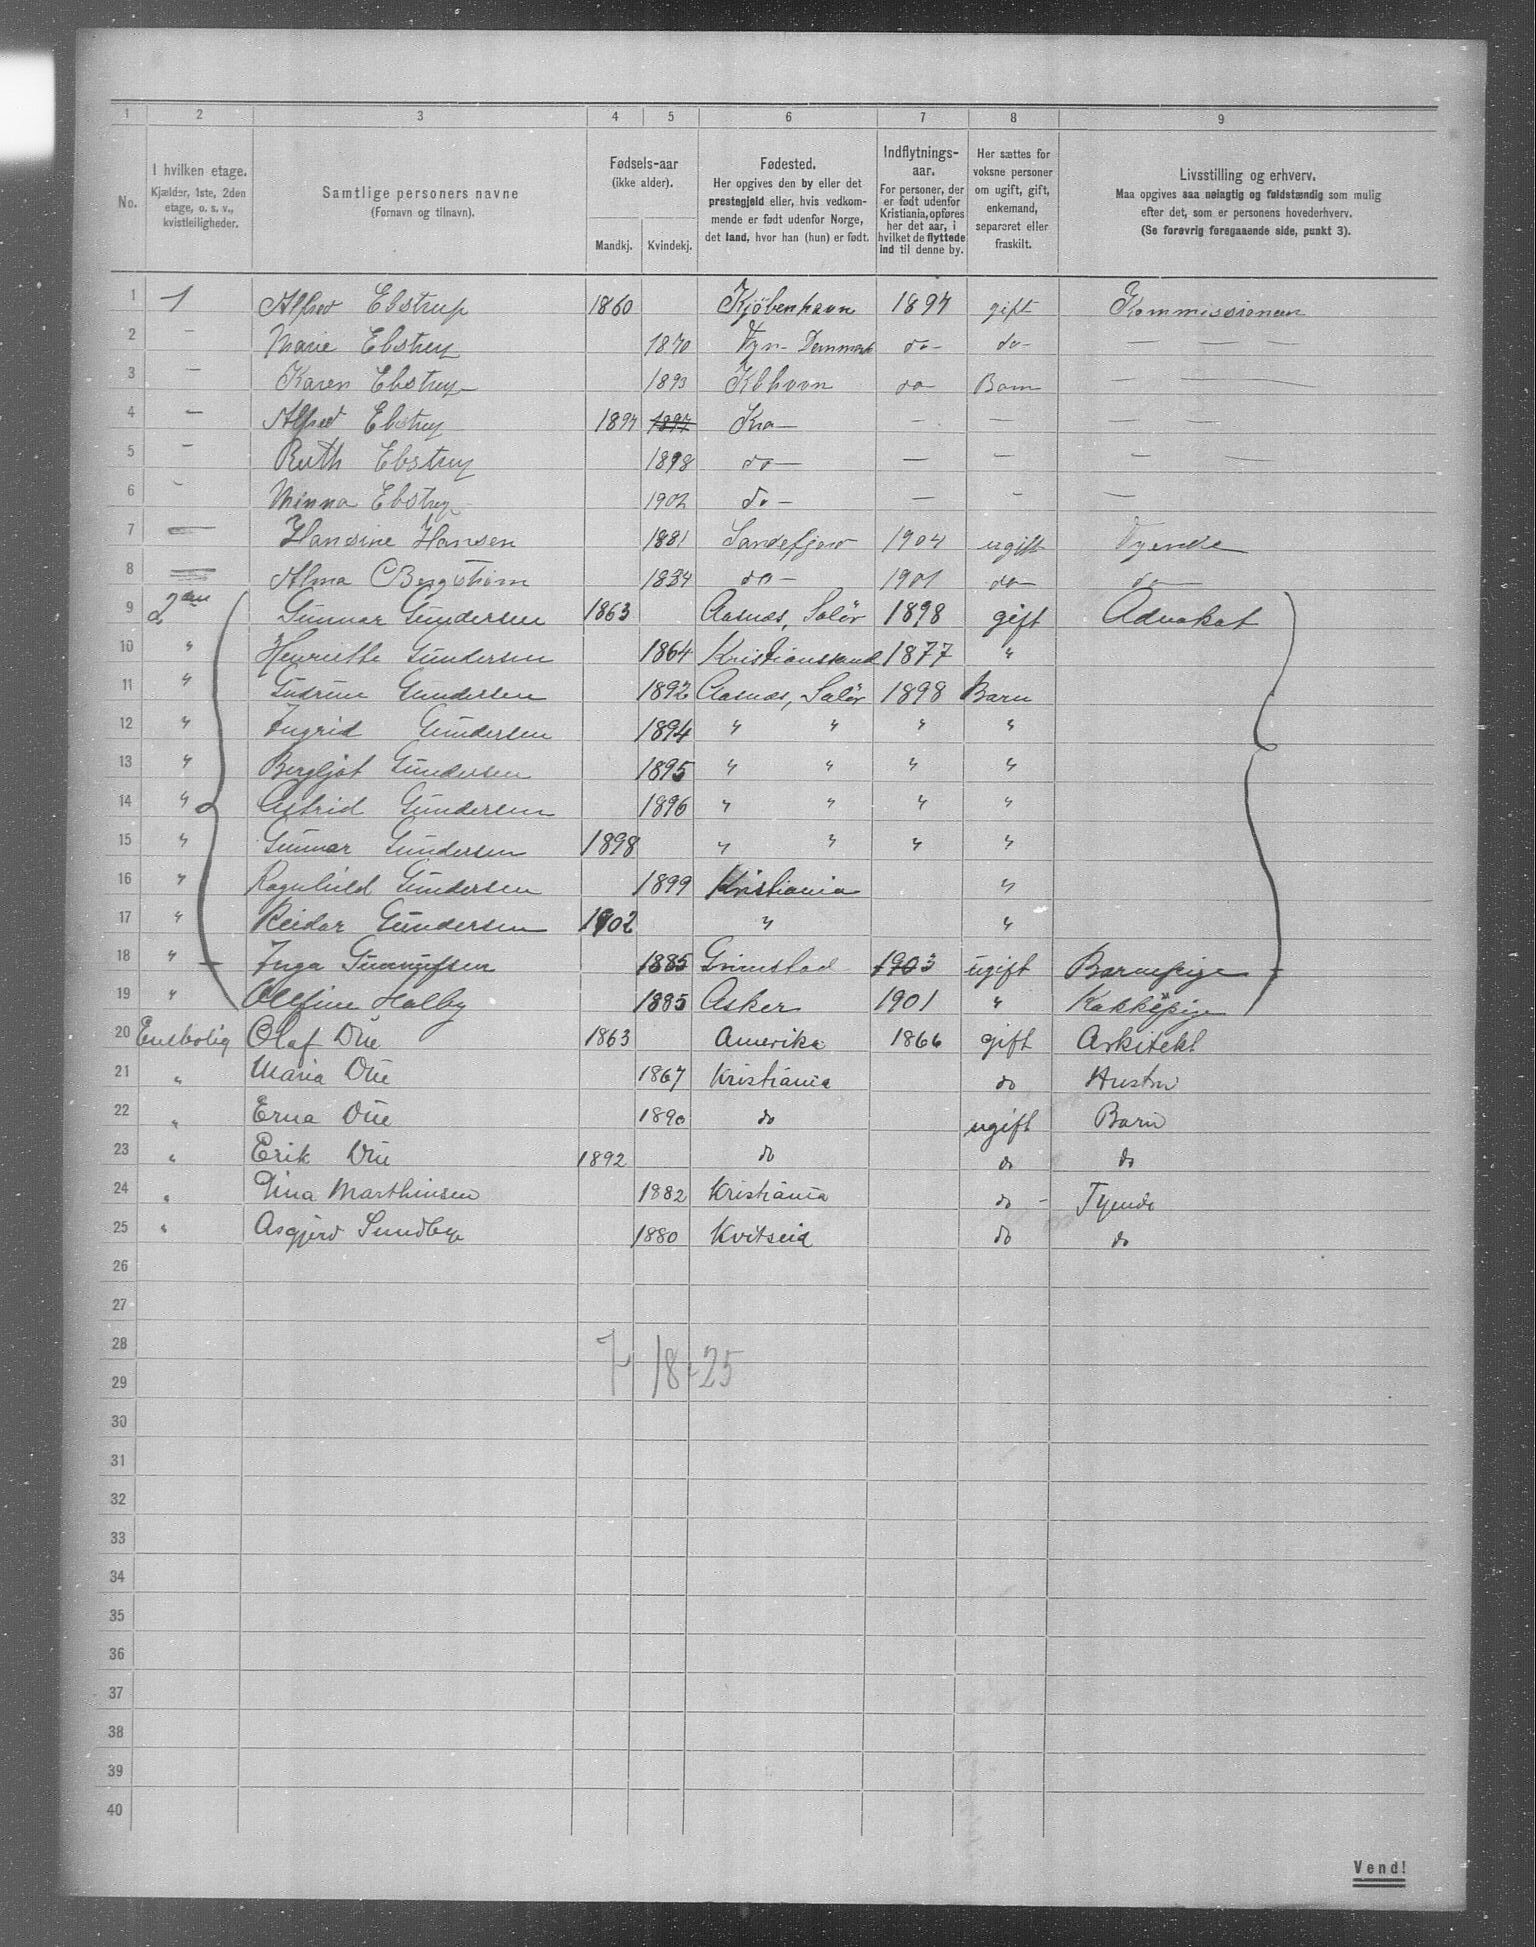 1 2 3 4 5 6 7 8 9
No.
I hvilken etage.
Kjælder, 1ste, 2den
etage, o. s. v.,
kvistleiligheder.
Samtlige personers navne
(Fornavn og tilnavn).
Fødsels-aar
(ikke alder).
Mandkj. Kvindekj.
Fødested.
Her opgives den by eller det
prestegjeld eller, hvis vedkom-
mende er født udenfor Norge,
det land, hvor han (hun) er født.
Indflytnings-
aar.
For personer, der
er født udenfor
Kristiania, opføres
her det aar, i
hvilket de flyttede
ind til denne by.
Her sættes for
voksne personer
om ugift, gift,
enkemand,
separeret eller
fraskilt.
Livsstilling og erhverv.
Maa opgives saa nøiagtig og fuldstændig som mulig
efter det, som er personens hovederhverv.
(Se forøvrig foregaaende side, punkt 3).
1 1 Alfred Ebstrup 1860 Kjöbenhavn 1897 gift Kommissionær
2 — Marie Ebstrup 1870 Fyn - Danmark do - do - — — —
3 — Karen Ebstrup 1893 Kbhvn do - Barn — —
4 — Alfred Ebstrup 1897 1897 Kra — — — — — —
5 — Ruth Ebstrup 1898 do — — — — —
6 — Minna Ebstrup 1902 do — — — —
7 — Hansine Hansen 1881 Sandefjord 1904 ugift Tyende
8 — Alma C Bergstrøm 1884 do — 1901 do — do —
9 2den Gunnar Gundersen 1863 Aasnæs, Solör 1898 gift Advokat
10 " Henriette Gundersen 1864 Kristianssand 1877 "
11 " Gudrun Gundersen 1892 Aasnæs, Solör 1898 Barn
12 " Ingrid Gundersen 1894 " " " "
13 " Bergljot Gundersen 1895 " " " "
14 " Astrid Gundersen 1896 " " " "
15 " Gunnar Gundersen 1898 " " " "
16 " Ragnhild Gundersen 1899 Kristiania "
17 " Reidar Gundersen 1902 " "
18 " — Inga 1885 Grimstad 1903 ugift Barnepige —
19 " Olefine Holby 1885 Asker 1901 " Kokkepige
20 Enebolig Olaf Due 1863 Amerika 1866 gift Arkitekt
21 " Maria Due 1867 Kristiania do Hustru
22 " Erna Due 1890 do ugift Barn
23 " Erik Due 1892 do do do
24 " Tina Marthinsen 1882 Kristiania do - Tyende
25 " Asgjerd Sundbye 1880 Kvitseid do do
26
27
28
7 18 - 25
29
30
31
32
33
34
35
36
37
38
39
40
Vend!